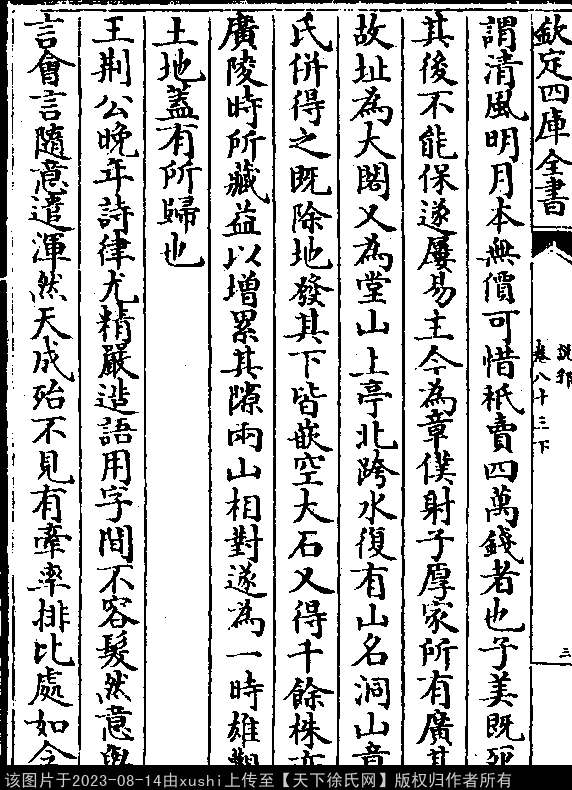 欽定四庫全書
説郛
卷八十三下
三
謂清風明月本無價可惜秪賣四萬錢者也子美既死
其後不能保遂屢易主今為章僕射子厚家所有廣其
故址為大閣又為堂山上亭北跨水復有山名洞山章
氏併得之既除地發其下皆嵌空大石又得千餘株亦
廣陵時所藏益以增累其隙兩山相對遂為一時雄觀
土地蓋有所歸也
王荆公晚年詩律尤精嚴造語用字間不容髮然意與
言會言隨意遣渾然天成殆不見有牽率排比處如含
该图片于2023-08-14由xushi上传至【天下徐氏网】版权归作者所有